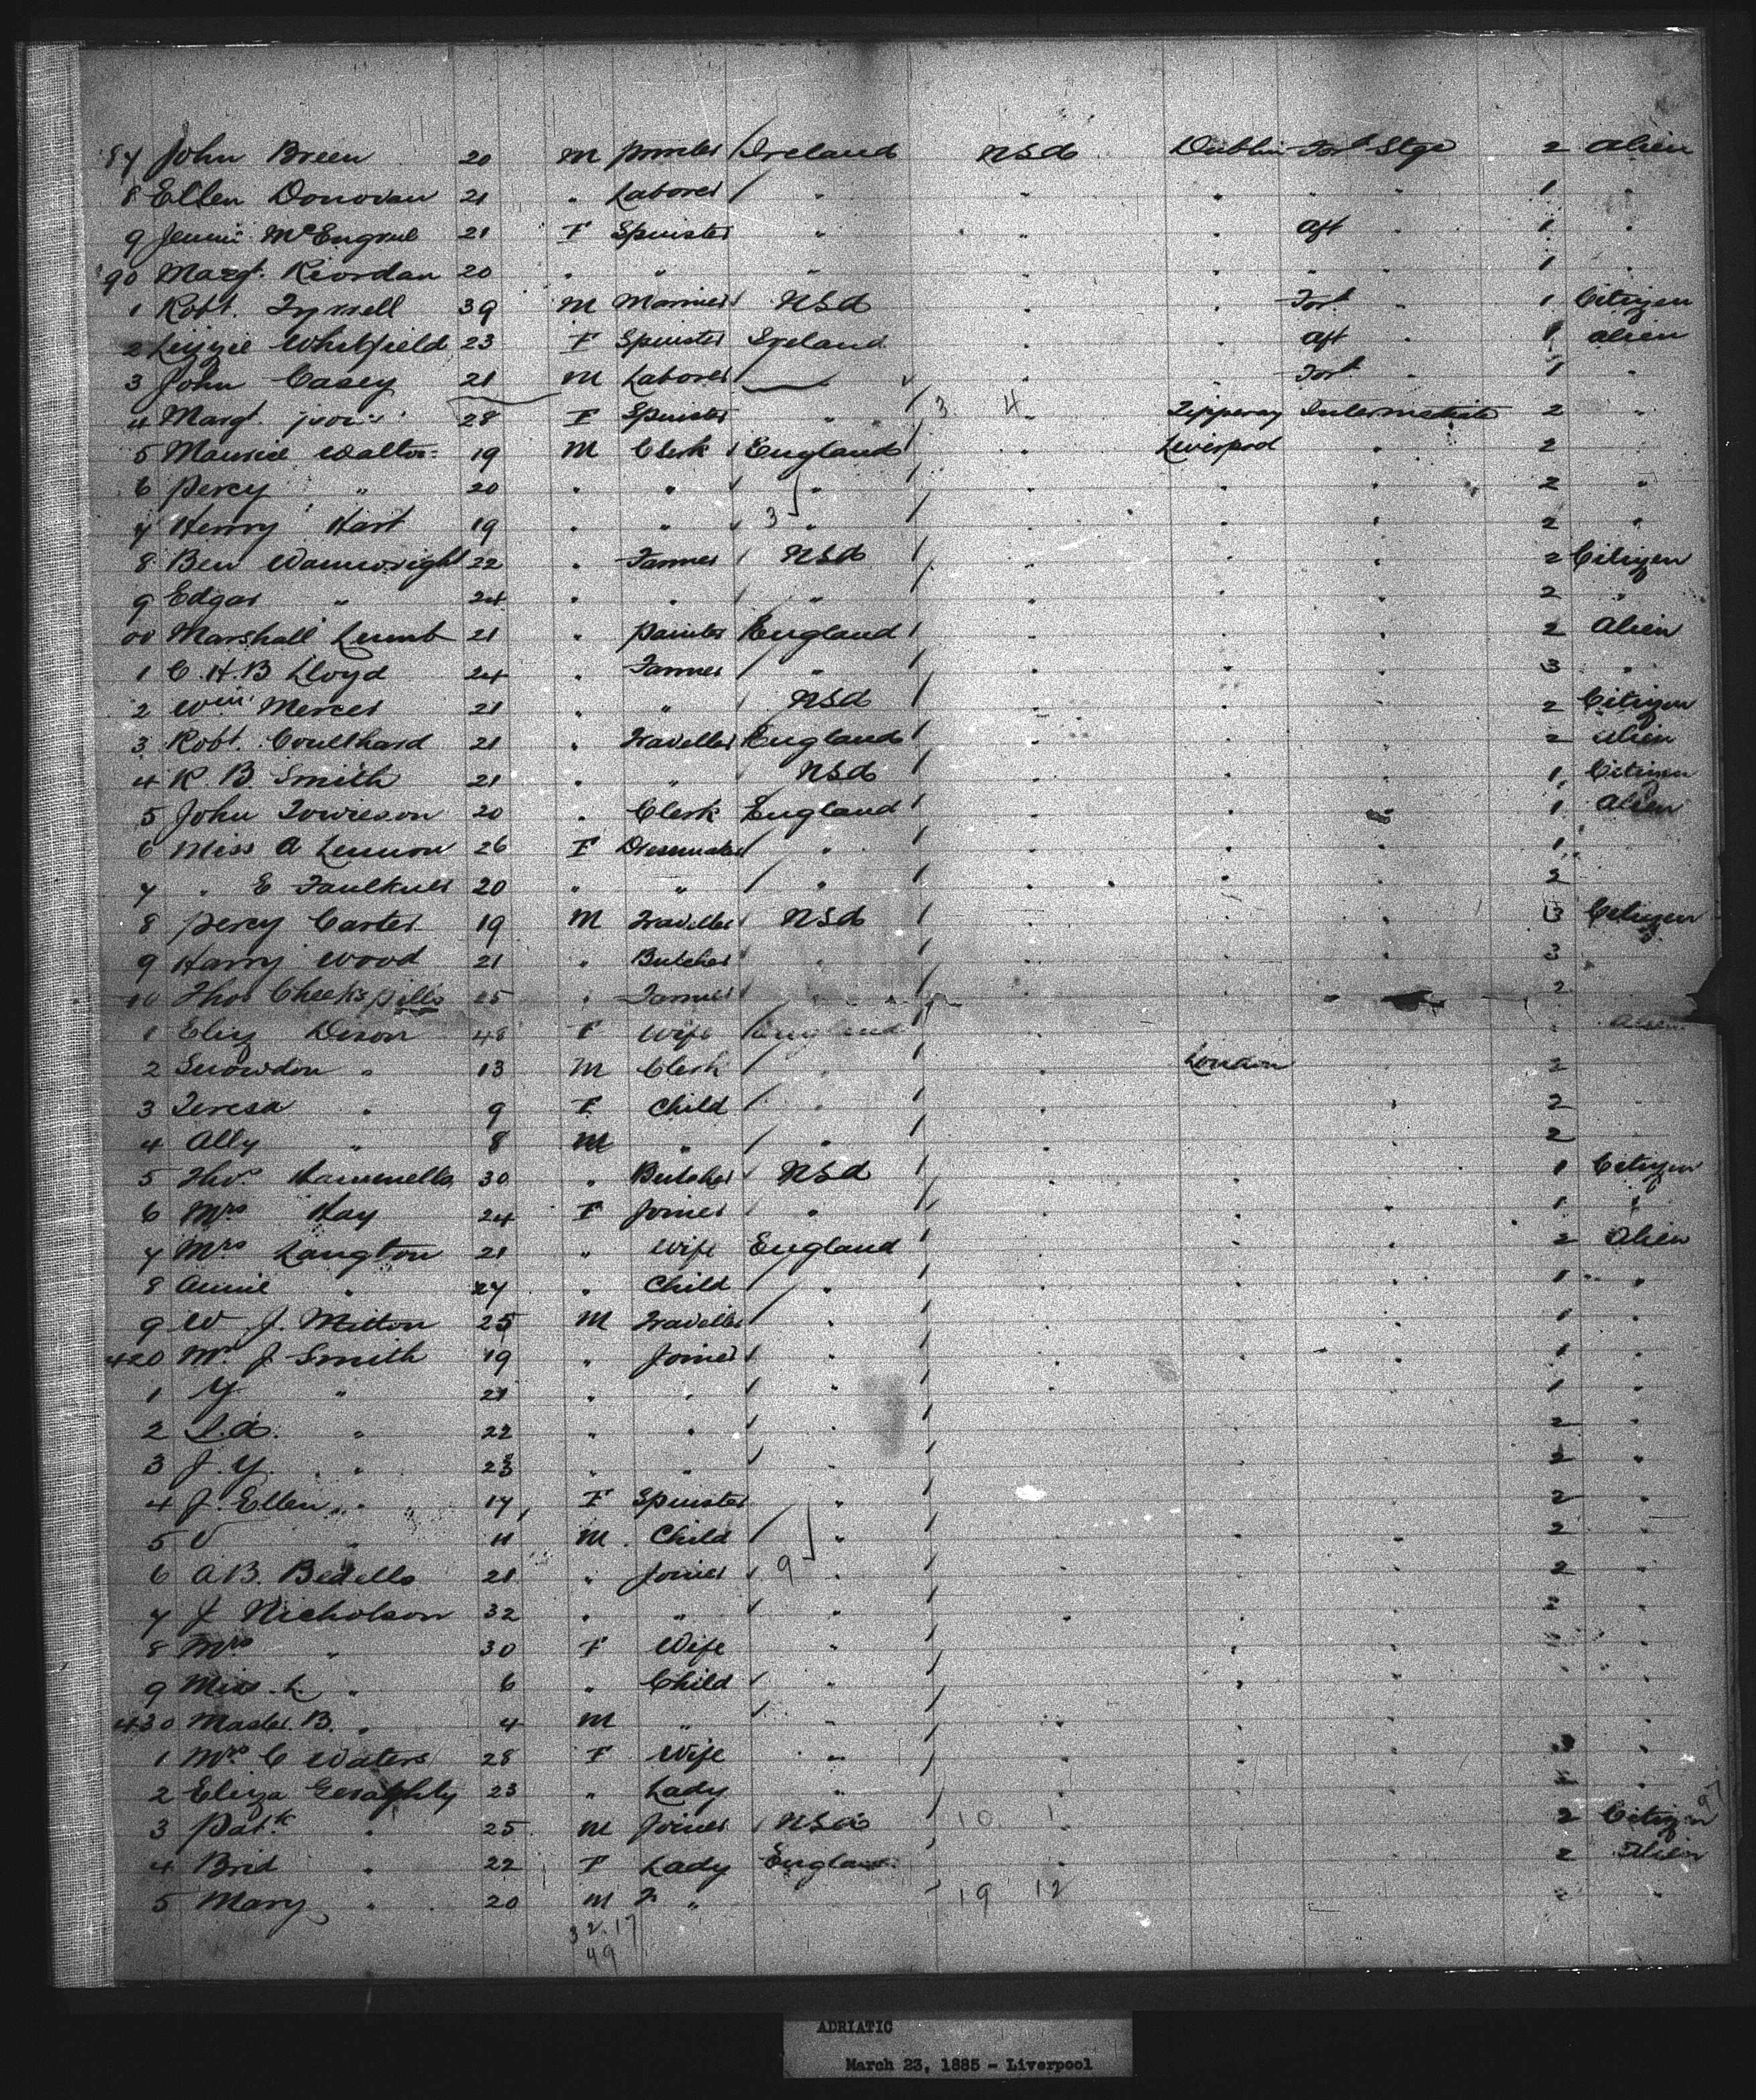 87 John Breen 20 M printer Ireland USA Dublin For'd Stge 2 Alien
8 Ellen Donovan 21 " Laborer " " " " " 1 "
9 Jennie 21 F Spinster " " " Aft 1 "
90 Margt. Riordan 20 " " " " " " " 1 "
1 Robt. Tyrrell 39 M Mariner USA " " For'd " 1 Citizen
2 Lizzie Whitfield 23 F Spinster Ireland " Aft " 1 Alien
3 John Casey 21 M Laborer " " For'd " 1 "
4 Margt. 28 F Spinster " 3 4 " Tipperary Intermediate 2 "
5 Maurice Walton 19 M Clerk England " Liverpool " 2
6 Percy " 20 " " " " " " 2 "
7 Henry Hart 19 " " 3 " " " " 2 "
8 Ben Wainwright 22 " Farmer USA " " " 2 Citizen
9 Edgar " 24 " " " " " " 2 "
00 Marshall Lumb 21 " painter England " " " 2 Alien
1 C. H. B Lloyd 24 " Farmer " " " " 3 "
2 Wm Mercer 21 " " USA " " " 2 Citizen
3 Robt. Coulthard 21 " Traveller England " " " 2 Alien
4 R. B. Smith 21 " " USA " " " 1 Citizen
5 John Towieson 20 " Clerk England " " " 1 Alien
6 Miss A Lennon 26 F Dressmaker " " " " 1
7 " E Faulkner 20 " " " " " " 2
8 Percy Carter 19 M Traveller USA " " " 3 Citizen
9 Harry Wood 21 " Butcher " " " " 3
10 Thos 25 " Farmer " " " " 2
1 Eliz Dixon 48 F Wife England " " " Alien
2 Snowdon " 13 M Clerk " " London 2
3 Teresa " 9 F Child " " " " 2
4 Ally " 8 M " " " " " 2
5 Thos. Hammells 30 " Butcher USA " " " 1 Citizen
6 Mrs Hay 24 F Joiner " " " " 1 "
7 Mrs Langton 21 " Wife England " " " 2 Alien
8 Annie " 27 " Child " " " " 1 "
9 W J Mitton 25 M Traveller " " " " 1 "
420 Mr. J Smith 19 " Joiner " " " " 1 "
1 Y " 21 " " " " " " 1 "
2 " 22 " " " " " " 2 "
3 J. Y. " 23 " " " " " " 2 "
4 J. Ellen " 17 F Spinster " " " " 2 "
5 " 11 M Child " " " " 2 "
6 A B. Bedells 21 " Joiner 9 " " " " 2 "
7 J Nicholson 32 " " " " " " 2 "
8 Mrs " 30 F Wife " " " " 2 "
9 Miss L " 6 " Child " " " " "
430 Master B. " 4 M " " " " " "
1 Mrs C Waters 28 F Wife " " " " 3 "
2 Eliza Geraghty 23 " Lady " " " " 2 "
3 Patk " 25 M Joiner USA 10 1 " " 2 Citizen
4 Brid " 22 F Lady England " " " 2 Alien
5 Mary " 20 M F " 19 12 " " 2 "
32.17
49
ADRIATIC
March 23, 1885 - Liverpool